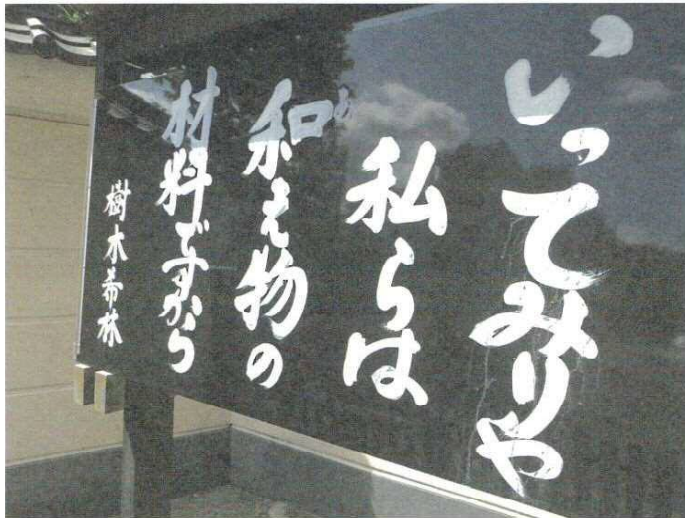 いってみりゃ
私らは
和え物の
材料ですから
樹木希林